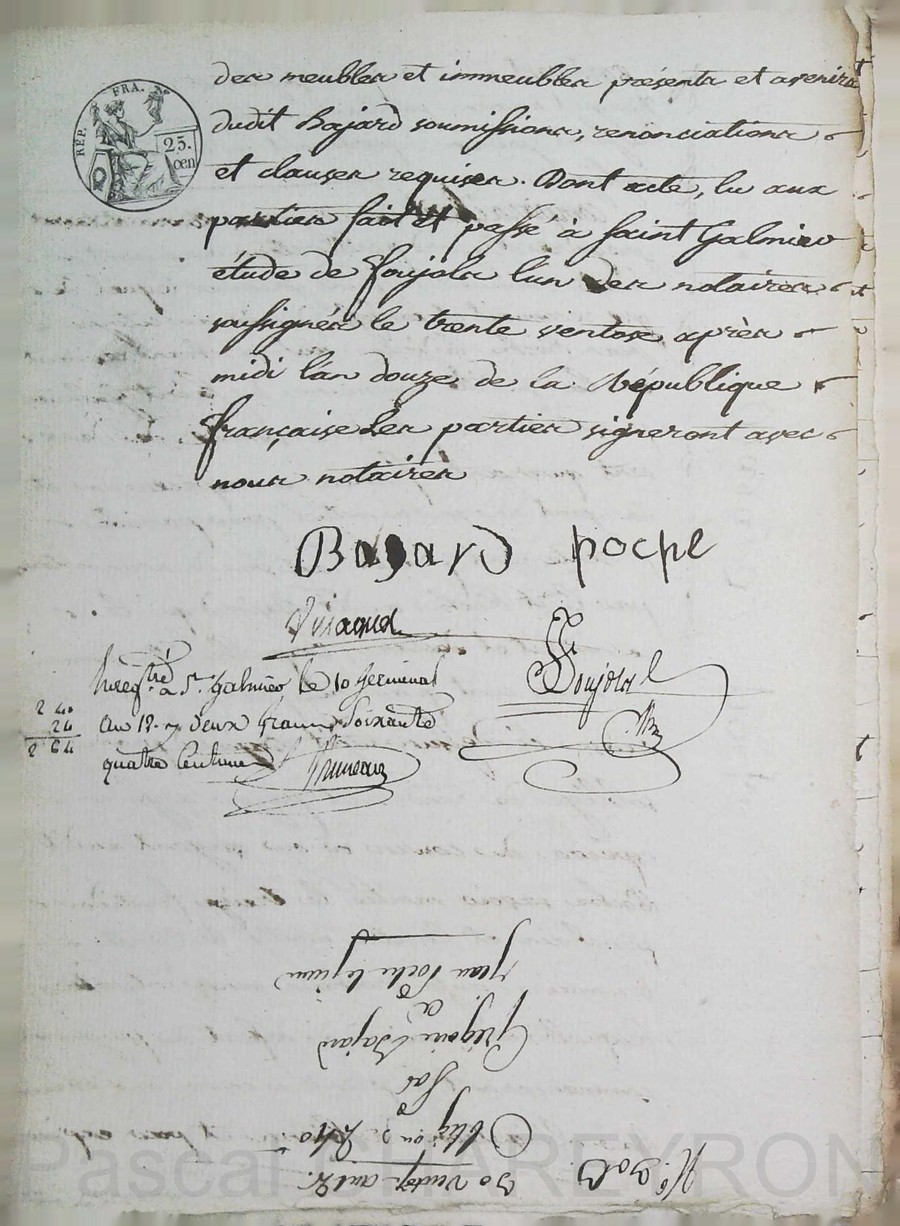 REP. FRA.
25.
cen
des meubles et immeubles présents et avenirs
dudit Bajard soumissions, renonciations
et clauses requises. Dont acte, lu aux
parties fait et passé à Saint Galmier
étude de Soujols l'un des notaires
soussignés le trente ventose après
midi l'an douze de la République
française Les parties signeront avec
nous notaires
Bagard pocpe
Soujols
Enregtré à St. Galmier le 10 Germinal
2 40
an 12. deux francs Soixante
24
2 64
quatre Centimes
No.
30 ventose an 12.
Obligon de
par
Grégoire Bajard
à
Jean Poche le jeune
Pascal CHAREYRON